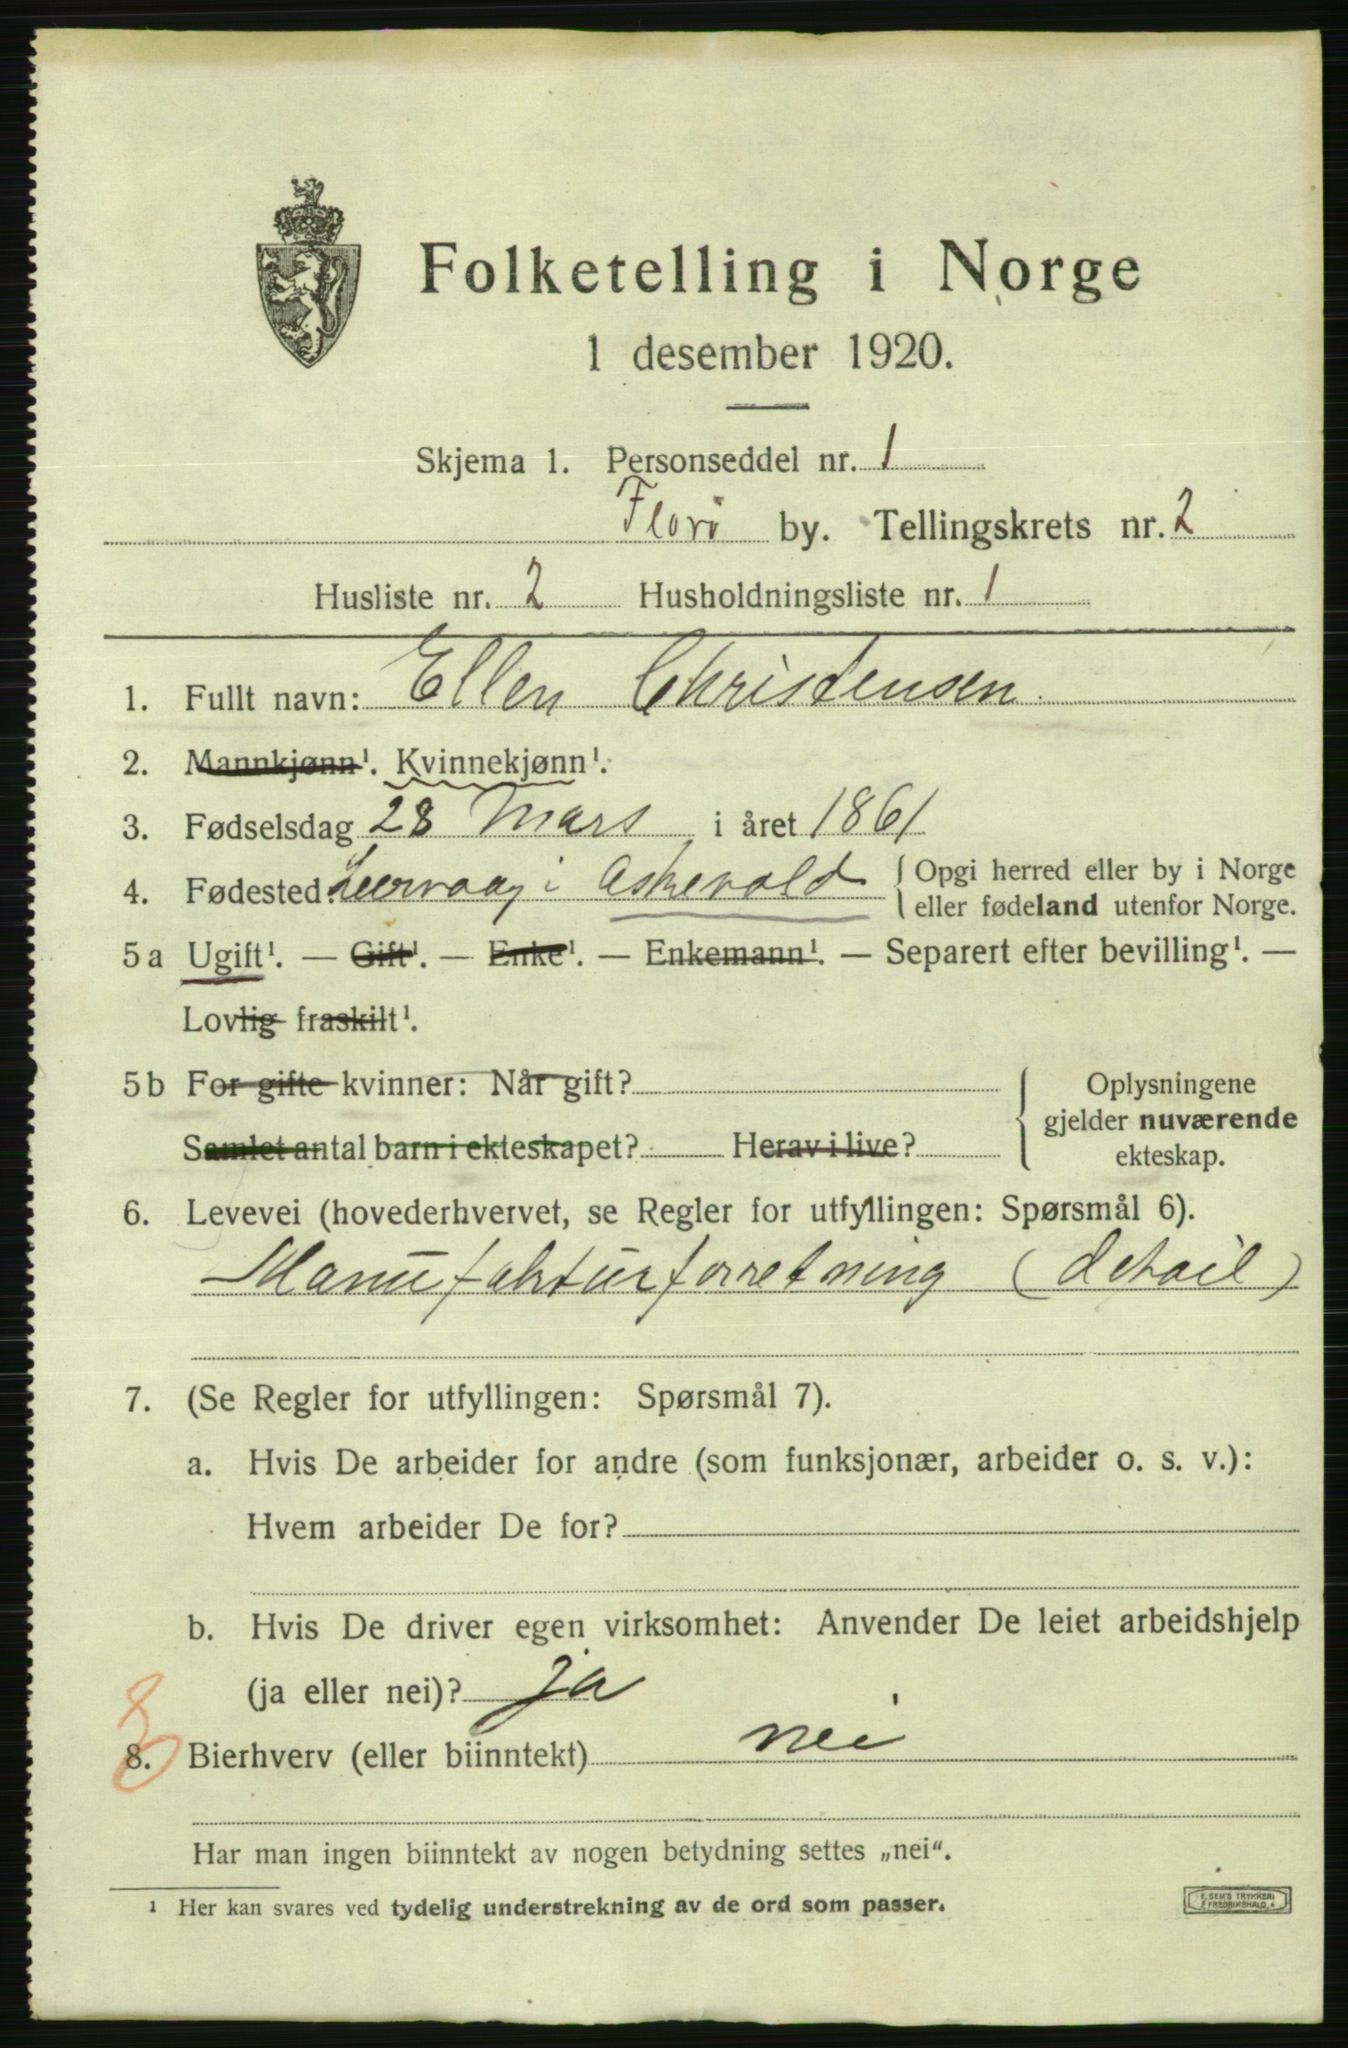 Folketelling i Norge
1 desember 1920.
Skjema 1. Personseddel nr. 1
Florø by. Tellingskrets nr. 2
Husliste nr. 2 Husholdningsliste nr. 1
1. Fullt navn: Ellen Christensen
2. Mannkjønn¹. Kvinnekjønn¹.
3. Fødselsdag 28 Mars i året 1861
4. Fødested: Leervaag i Askevold { Opgi herred eller by i Norge
eller fødeland utenfor Norge.
5a Ugift¹. — Gift¹. — Enke¹. — Enkemann¹. — Separert efter bevilling¹. —
Lovlig fraskilt¹.
5b For gifte kvinner: Når gift?
Samlet antal barn i ekteskapet? Herav i live?
{ Oplysningene
gjelder nuværende
ekteskap.
6. Levevei (hovederhvervet, se Regler for utfyllingen: Spørsmål 6).
Manufakturforretning (detail)
7. (Se Regler for utfyllingen: Spørsmål 7).
a. Hvis De arbeider for andre (som funksjonær, arbeider o. s. v.):
Hvem arbeider De for?
b. Hvis De driver egen virksomhet: Anvender De leiet arbeidshjelp
(ja eller nei)? ja
8. Bierhverv (eller biinntekt) nei
Har man ingen biinntekt av nogen betydning settes „nei“.
¹ Her kan svares ved tydelig understrekning av de ord som passer.
E. SEM'S TRYKKERI
FREDRIKSHALD